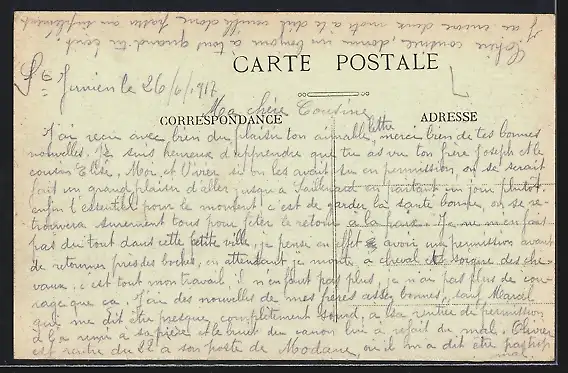 CARTE POSTALE
CORRESPONDANCE
ADRESSE
St Junien le 26/6/1917
Ma chère Cousine
J'ai reçu avec bien du plaisir ton aimable lettre, merci bien de tes bonnes
nouvelles. Je suis heureux d'apprendre que tu as vu ton frère Joseph et le
cousin Elisé, Moi et si on les avait su en permission, on se serait
fait un grand plaisir d'aller jusqu'a en partant un jour plutôt,
enfin l'essentiel pour le moment c'est de garder la santé bonne, on se re-
trouvera surement tous pour fêter le retour à la paix. Je ne m'en fait
pas du tout dans cette petite ville, je pense en effet avoir une permission avant
de retourner près des boches, en attendant je monte à cheval et soigne des che-
vaux, c'est tout mon travail, il n'en faut pas plus, je n'ai pas plus de cou-
rage que ça. J'ai des nouvelles de mes frères assez bonnes, sauf Marcel
qui me dit être presque complètement sourd, a sa rentrée de permission
il a revu a sa pièce et le bruit du canon lui a refait du mal. Olivier
est rentré du 22 a son poste de Modane, où il m'a dit être pas trop
mal.
encore deux mots a le dire
donne un bonjour à tous quand tu écri